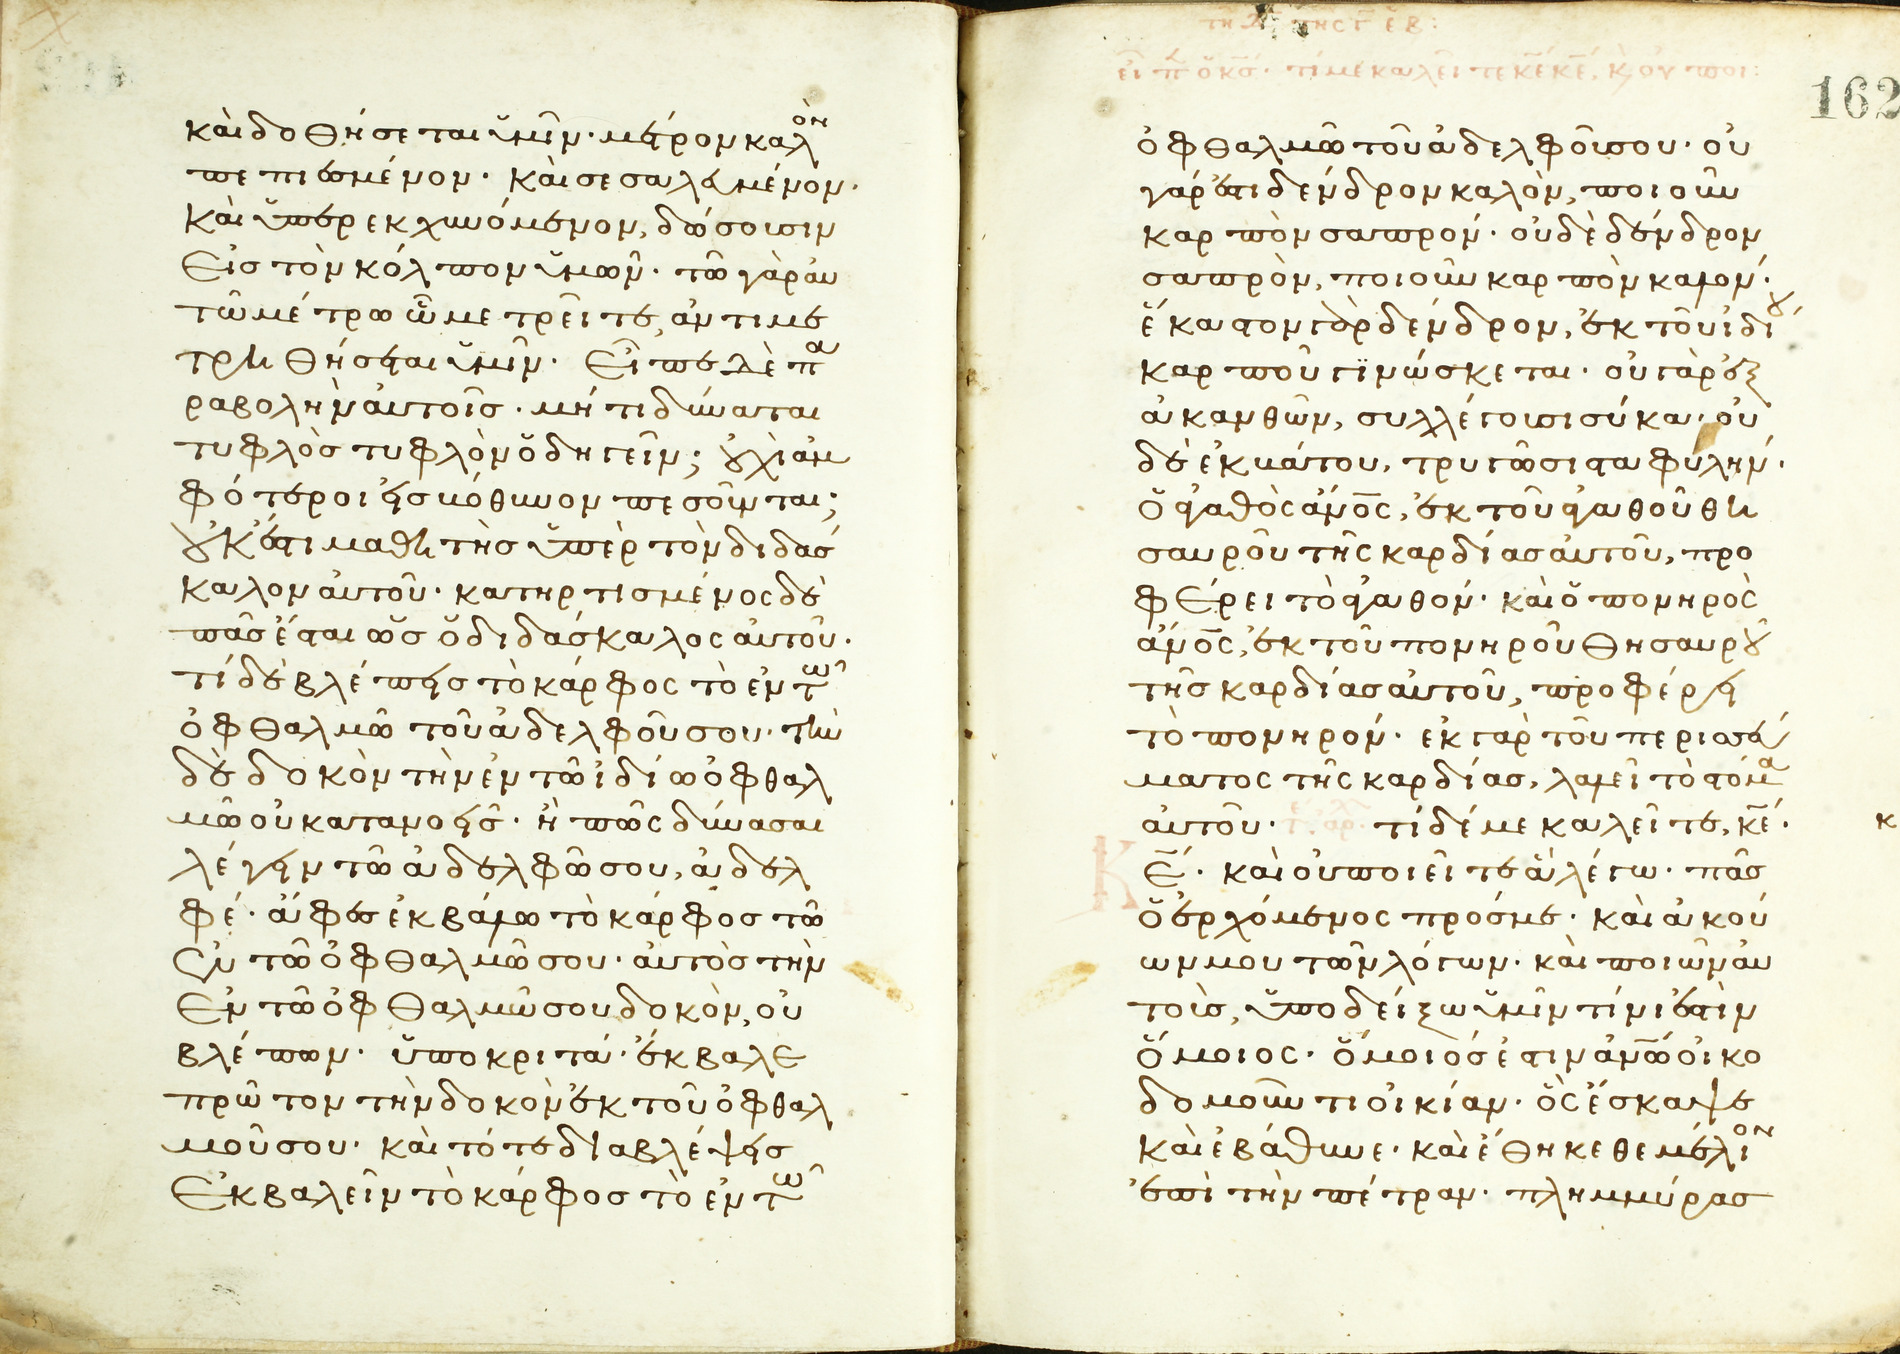 καὶ δοθήσεται ὑμῖν· μέτρον καλὸν
πεπιεσμένον· καὶ σεσαλευμένον·
καὶ ὑπερεκχυνόμενον, δώσουσιν
εἰς τὸν κόλπον ὑμῶν· τῶ γὰρ αὐ
τῶ μέτρω ὧ μετρεῖτε, ἀντιμε
τρηθήσεται ὑμῖν· εἶπε δὲ πα
ραβολὴν αὐτοῖς· μήτι δύναται
τυφλὸς τυφλὸν ὁδηγεῖν; οὐχὶ ἀμ
φότεροι εἰς βόθυνον πεσοῦνται;
οὐκ ἔστι μαθητὴς ὑπὲρ τὸν διδάσ
καλον αὐτοῦ· κατηρτισμένος δὲ
πᾶς ἔσται ὡς ὁ διδάσκαλος αὐτοῦ·
τί δὲ βλέπεις τὸ κάρφος τὸ ἐν τῶ
ὀφθαλμῶ τοῦ ἀδελφοῦ σου· τὴν
δὲ δοκὸν τὴν ἐν τῶ ἰδίω ὀφθαλ
μῶ οὐ κατανοεῖς· ἢ πῶς δύνασαι
λέγειν τῶ ἀδελφῶ σου, ἀδελ
φέ· ἄφες ἐκβάλλω τὸ κάρφος τὸ
ἐν τῶ ὀφθαλμῶ σου· αὐτὸς τὴν
ἐν τῶ ὀφθαλμῶ σου δοκὸν, οὐ
βλέπων· ὑποκριτά· ἔκβαλε
πρῶτον τὴν δοκὸν ἐκ τοῦ ὀφθαλ
μοῦ σου· καὶ τότε διαβλέψεις
ἐκβαλεῖν τὸ κάρφος τὸ ἐν τῶ
εἶπεν ὁ κς· τί με καλεῖτε κε κε, κ οὐ ποι:
162
ὀφθαλμῶ τοῦ ἀδελφοῦ σου· οὐ
γάρ ἐστι δένδρον καλὸν, ποιοῦν
καρπὸν σαπρόν· οὐδὲ δένδρον
σαπρὸν, ποιοῦν καρπὸν καλόν·
ἕκαστον γὰρ δένδρον, ἐκ τοῦ ἰδίου
καρποῦ γϊνώσκεται· οὐ γὰρ ἐξ
ἀκανθῶν, συλλέγουσι σύκα· οὐ
δὲ ἐκ βάτου, τρυγῶσι σταφυλήν·
ὁ ἀγαθὸς ἄνος, ἐκ τοῦ ἀγαθοῦ θη
σαυροῦ τῆς καρδίας αὐτοῦ, προ
φέρει τὸ ἀγαθόν· καὶ ὁ πονηρὸς
ἄνος, ἐκ τοῦ πονηροῦ θησαυροῦ
τῆς καρδίας αὐτοῦ, προφέρει
τὸ πονηρόν· ἐκ γὰρ τοῦ περισσεύ
ματος τῆς καρδίας, λαλεῖ τὸ στόμα
αὐτοῦ· τί δέ με καλεῖτε, κε·
κε· καὶ οὐ ποιεῖτε ἃ λέγω· πᾶς
ὁ ἐρχόμενος πρός με· καὶ ἀκού
ων μου τῶν λόγων· καὶ ποιῶν αὐ
τοὺς, ὑποδείξω ὑμῖν τίνι ἐστὶν
ὅμοιος· ὅμοιός ἐστιν ἀνω οἰκο
δομοῦντι οἰκίαν· ὃς ἔσκαψε
καὶ ἐβάθυνε· καὶ ἔθηκε θεμέλιον
ἐπὶ τὴν πέτραν· πλημμύρας